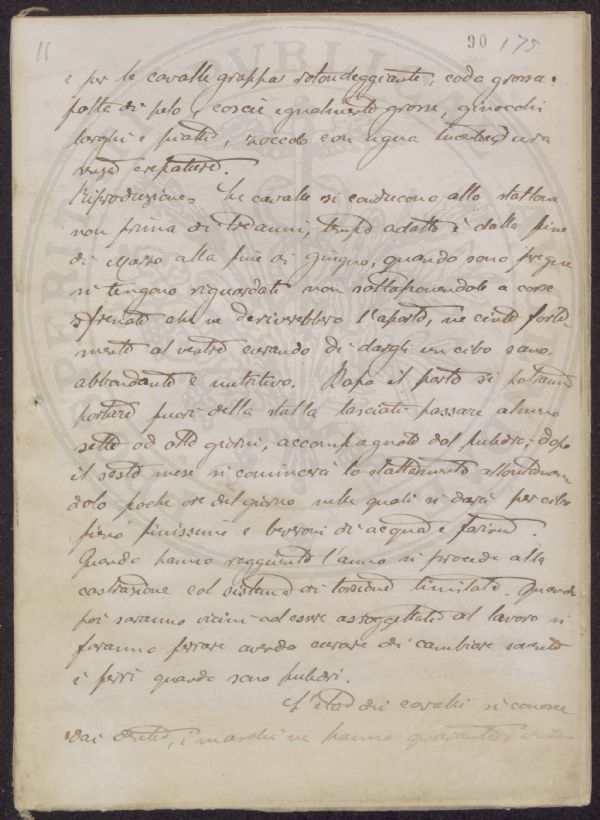 11
90 175
e per le cavalle groppa rotondeggiante, coda grossa
folta di pelo, coscie egualmente grosse, ginocchi
larghi e piatti, zoccolo con ugna
senza crepature.
Riproduzione = Le cavalle si conducono allo stallone
non prima di tre anni, tempo adatto è dalla fine
di Marzo alla fine di giugno, quando sono pregne
si tengono riguardate non sottoponendole a corse
sfrenate che ne deriverebbero l'aborto, ne cinte forte-
mente al ventre curando di dargli un cibo sano,
abbondante e nutritivo. Dopo il parto si potranno
portare fuori della stalla lasciate passare almeno
sette od otto giorni, accompagnate dal puledro; dopo
il sesto mese si comincerà lo slattamento allontanan-
dolo poche ore del giorno nelle quali si darà per cibo
fieno finissimo e beveroni di acqua e farina.
Quando hanno raggiunto l'anno si procede alla
castrazione col sistema di torsione limitata. Quando
poi saranno vicini ad essere assoggettati al lavoro si
faranno ferrare avendo curare di cambiare sovente
i ferri quando sono puledri.
L'età dei cavalli si conosce
dai denti, i maschi ne hanno quaranta,